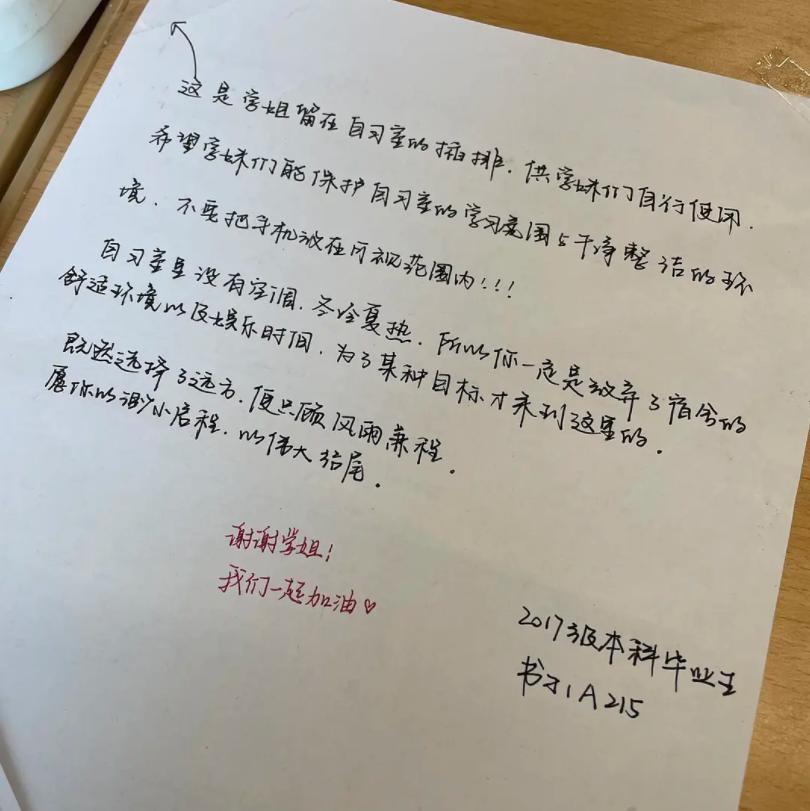 这是学姐留在自习室的插排，供学妹们自行使用．
希望学妹们能保护自习室的学习氛围与干净整洁的环
境．不要把手机放在可视范围内！！！
自习室里没有空调，冬冷夏热．所以你一定是放弃了宿舍的
舒适环境以及娱乐时间，为了某种目标才来到这里的．
既然选择了远方，便只顾风雨兼程．
愿你以渺小启程，以伟大结尾．
谢谢学姐！
我们一起加油♡
2017级本科毕业生
书于1A215